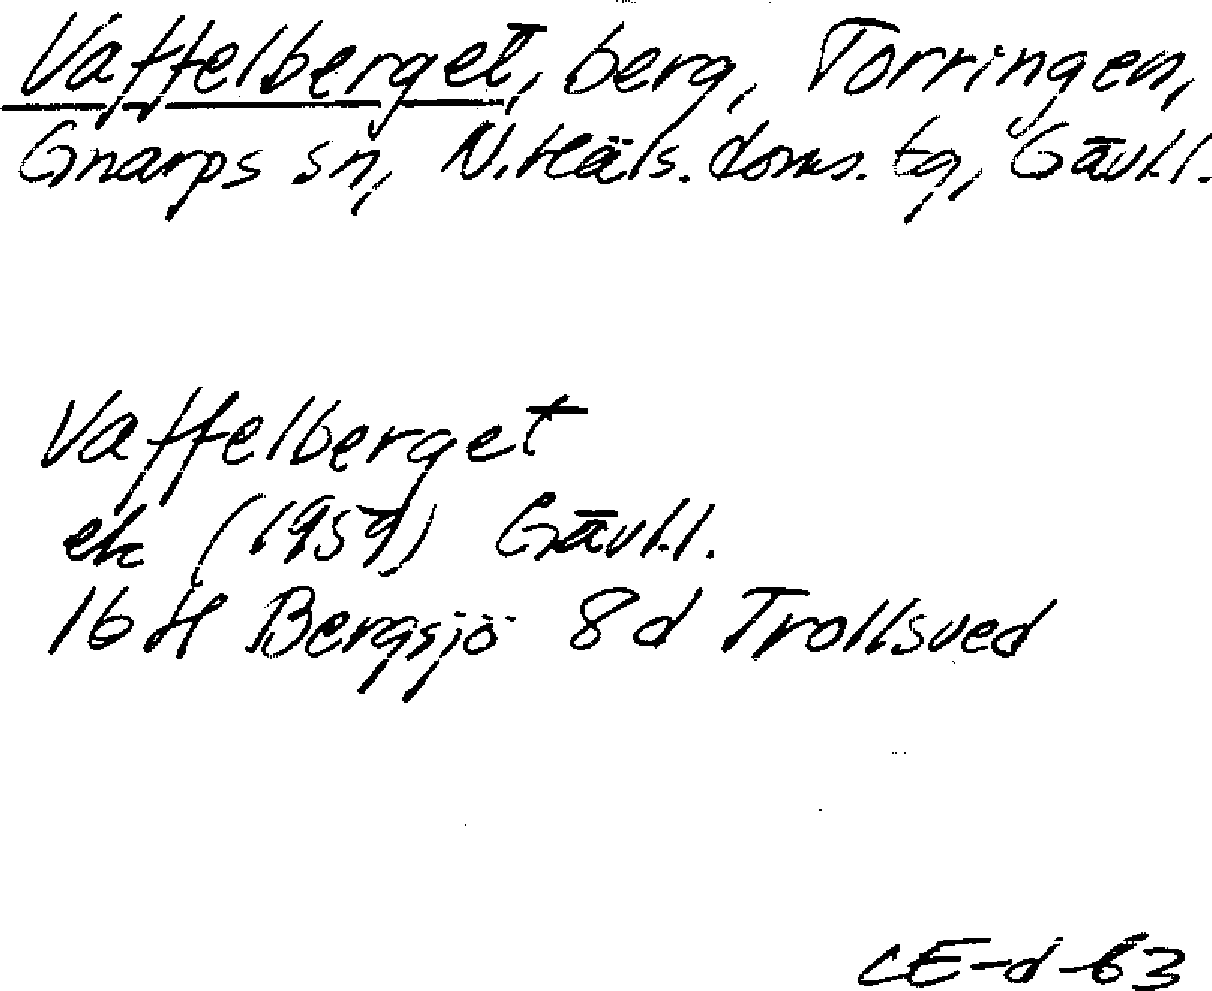 Vaffelberget, berg, Torringen,
Gnarps sn, N. Häls. doms. tg, Gävl.l.
Vaffelberget
ek (1959) Gävl.l.
16 H Bergsjö 8 d Trollsved
CE-d-63